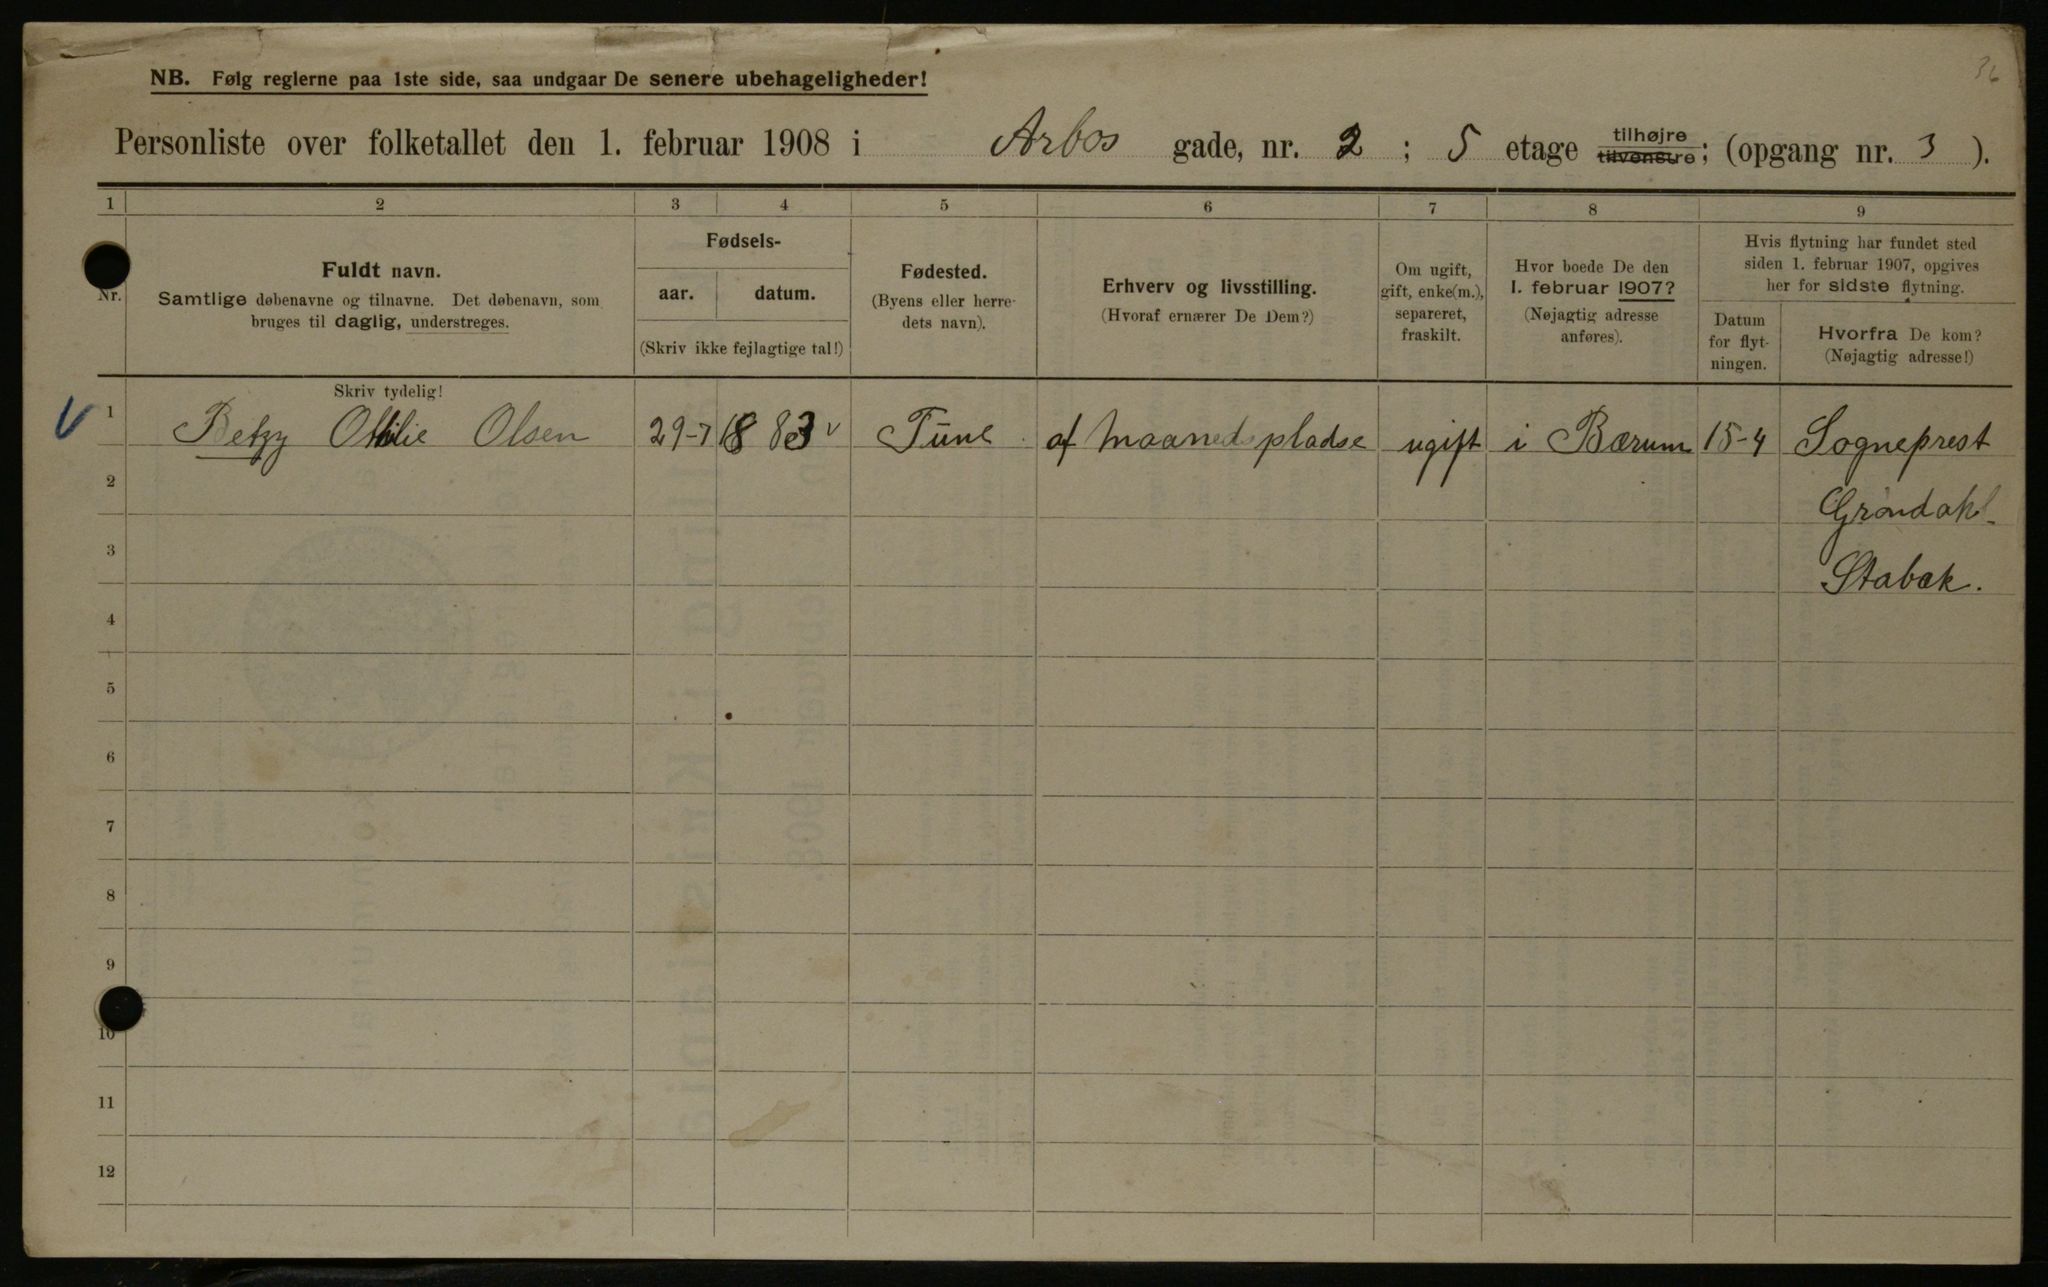 36
NB. Følg reglerne paa 1ste side, saa undgaar De senere ubehageligheder!
Personliste over folketallet den 1. februar 1908 i Arbos gade, nr. 2 ; 5 etage tilhøjre tilvenstre; (opgang nr. 3 ).
1 2 3 4 5 6 7 8 9
Nr.
Fuldt navn.
Samtlige døbenavne og tilnavne. Det døbenavn, som
bruges til daglig, understreges.
Skriv tydelig!
Fødsels-
aar. datum.
(Skriv ikke fejlagtige tal!)
Fødested.
(Byens eller herre-
dets navn).
Erhverv og livsstilling.
(Hvoraf ernærer De Dem?)
Om ugift,
gift, enke(m.),
separeret,
fraskilt.
Hvor boede De den
1. februar 1907?
(Nøjagtig adresse
anføres).
Hvis flytning har fundet sted
siden 1. februar 1907, opgives
her for sidste flytning.
Datum
for flyt-
ningen.
Hvorfra De kom?
(Nøjagtig adresse!)
1 Betzy Otilie Olsen 29-7 1883 v Tune af Maanedspladse ugift i Bærum 15-4 Sogneprest
Grøndahl
Stabæk.
2
3
4
5
6
7
8
9
10
11
12